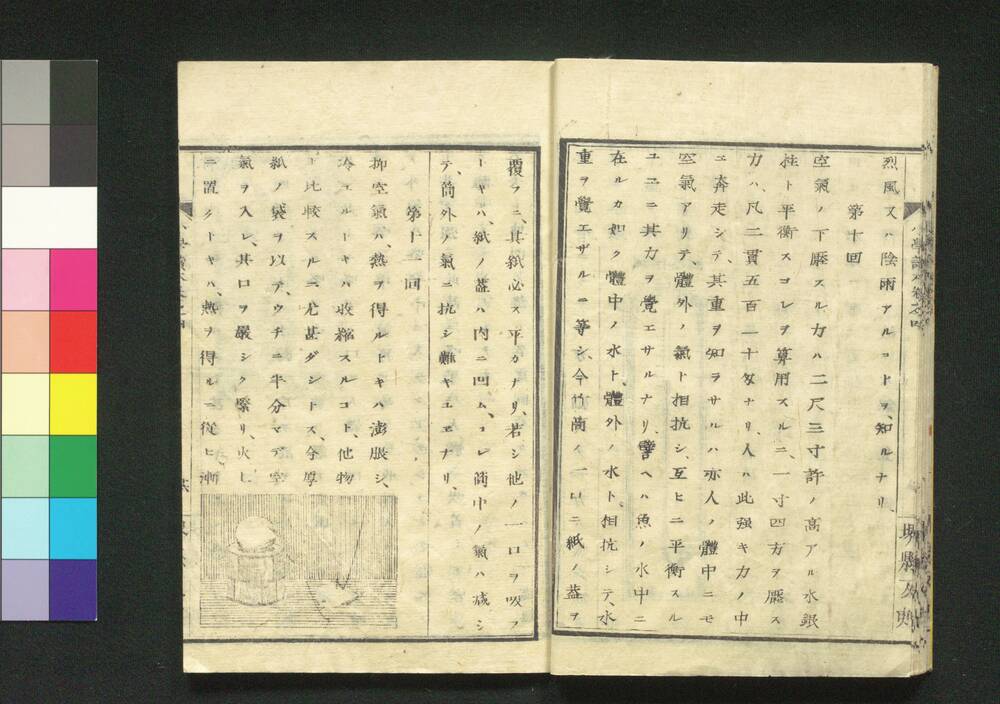 烈風又ハ陰雨アルコトヲ、知ルナリ、
第十回
空氣ノ下壓スル力ハ二尺三寸許ノ高アル水銀
柱ト平衡スコレヲ算用スルニ、一寸四方ヲ壓ス
力ハ、凡二貫五百一十匁ナリ、人ハ此强キ力ノ中
ニ奔走シテ、其重ヲ知ラサルハ亦人ノ體中ニモ
空氣アリテ、體外ノ氣ト相抗シ、互ヒニ平衡スル
ユエニ其力ヲ覺エサルナリ、譬ヘハ魚ノ水中ニ
在ルカ如ク體中ノ水ト、體外ノ水ト、相抗シテ、水
重ヲ覺エザルニ等シ、今竹筒ノ一口ニ紙ノ蓋ヲ
覆フニ、其紙必ス平カナリ、若シ他ノ一口ヲ吸フ
トキハ、紙ノ蓋ハ内ニ凹ム、コレ筒中ノ氣ハ減シ
テ、筒外ノ氣ニ抗シ難キユエナリ、
第十一回
抑空氣ハ、熱ヲ得ルトキハ澎脹シ、
冷ユルトキハ收縮スルコト、他物
ト比較スルニ尤甚ダシトス、今厚
紙ノ袋ヲ以テ、ウチニ半分マデ空
氣ヲ入レ、其口ヲ嚴シク緊リ、火上
ニ置クトキハ、熱ヲ得ルニ從ヒ漸